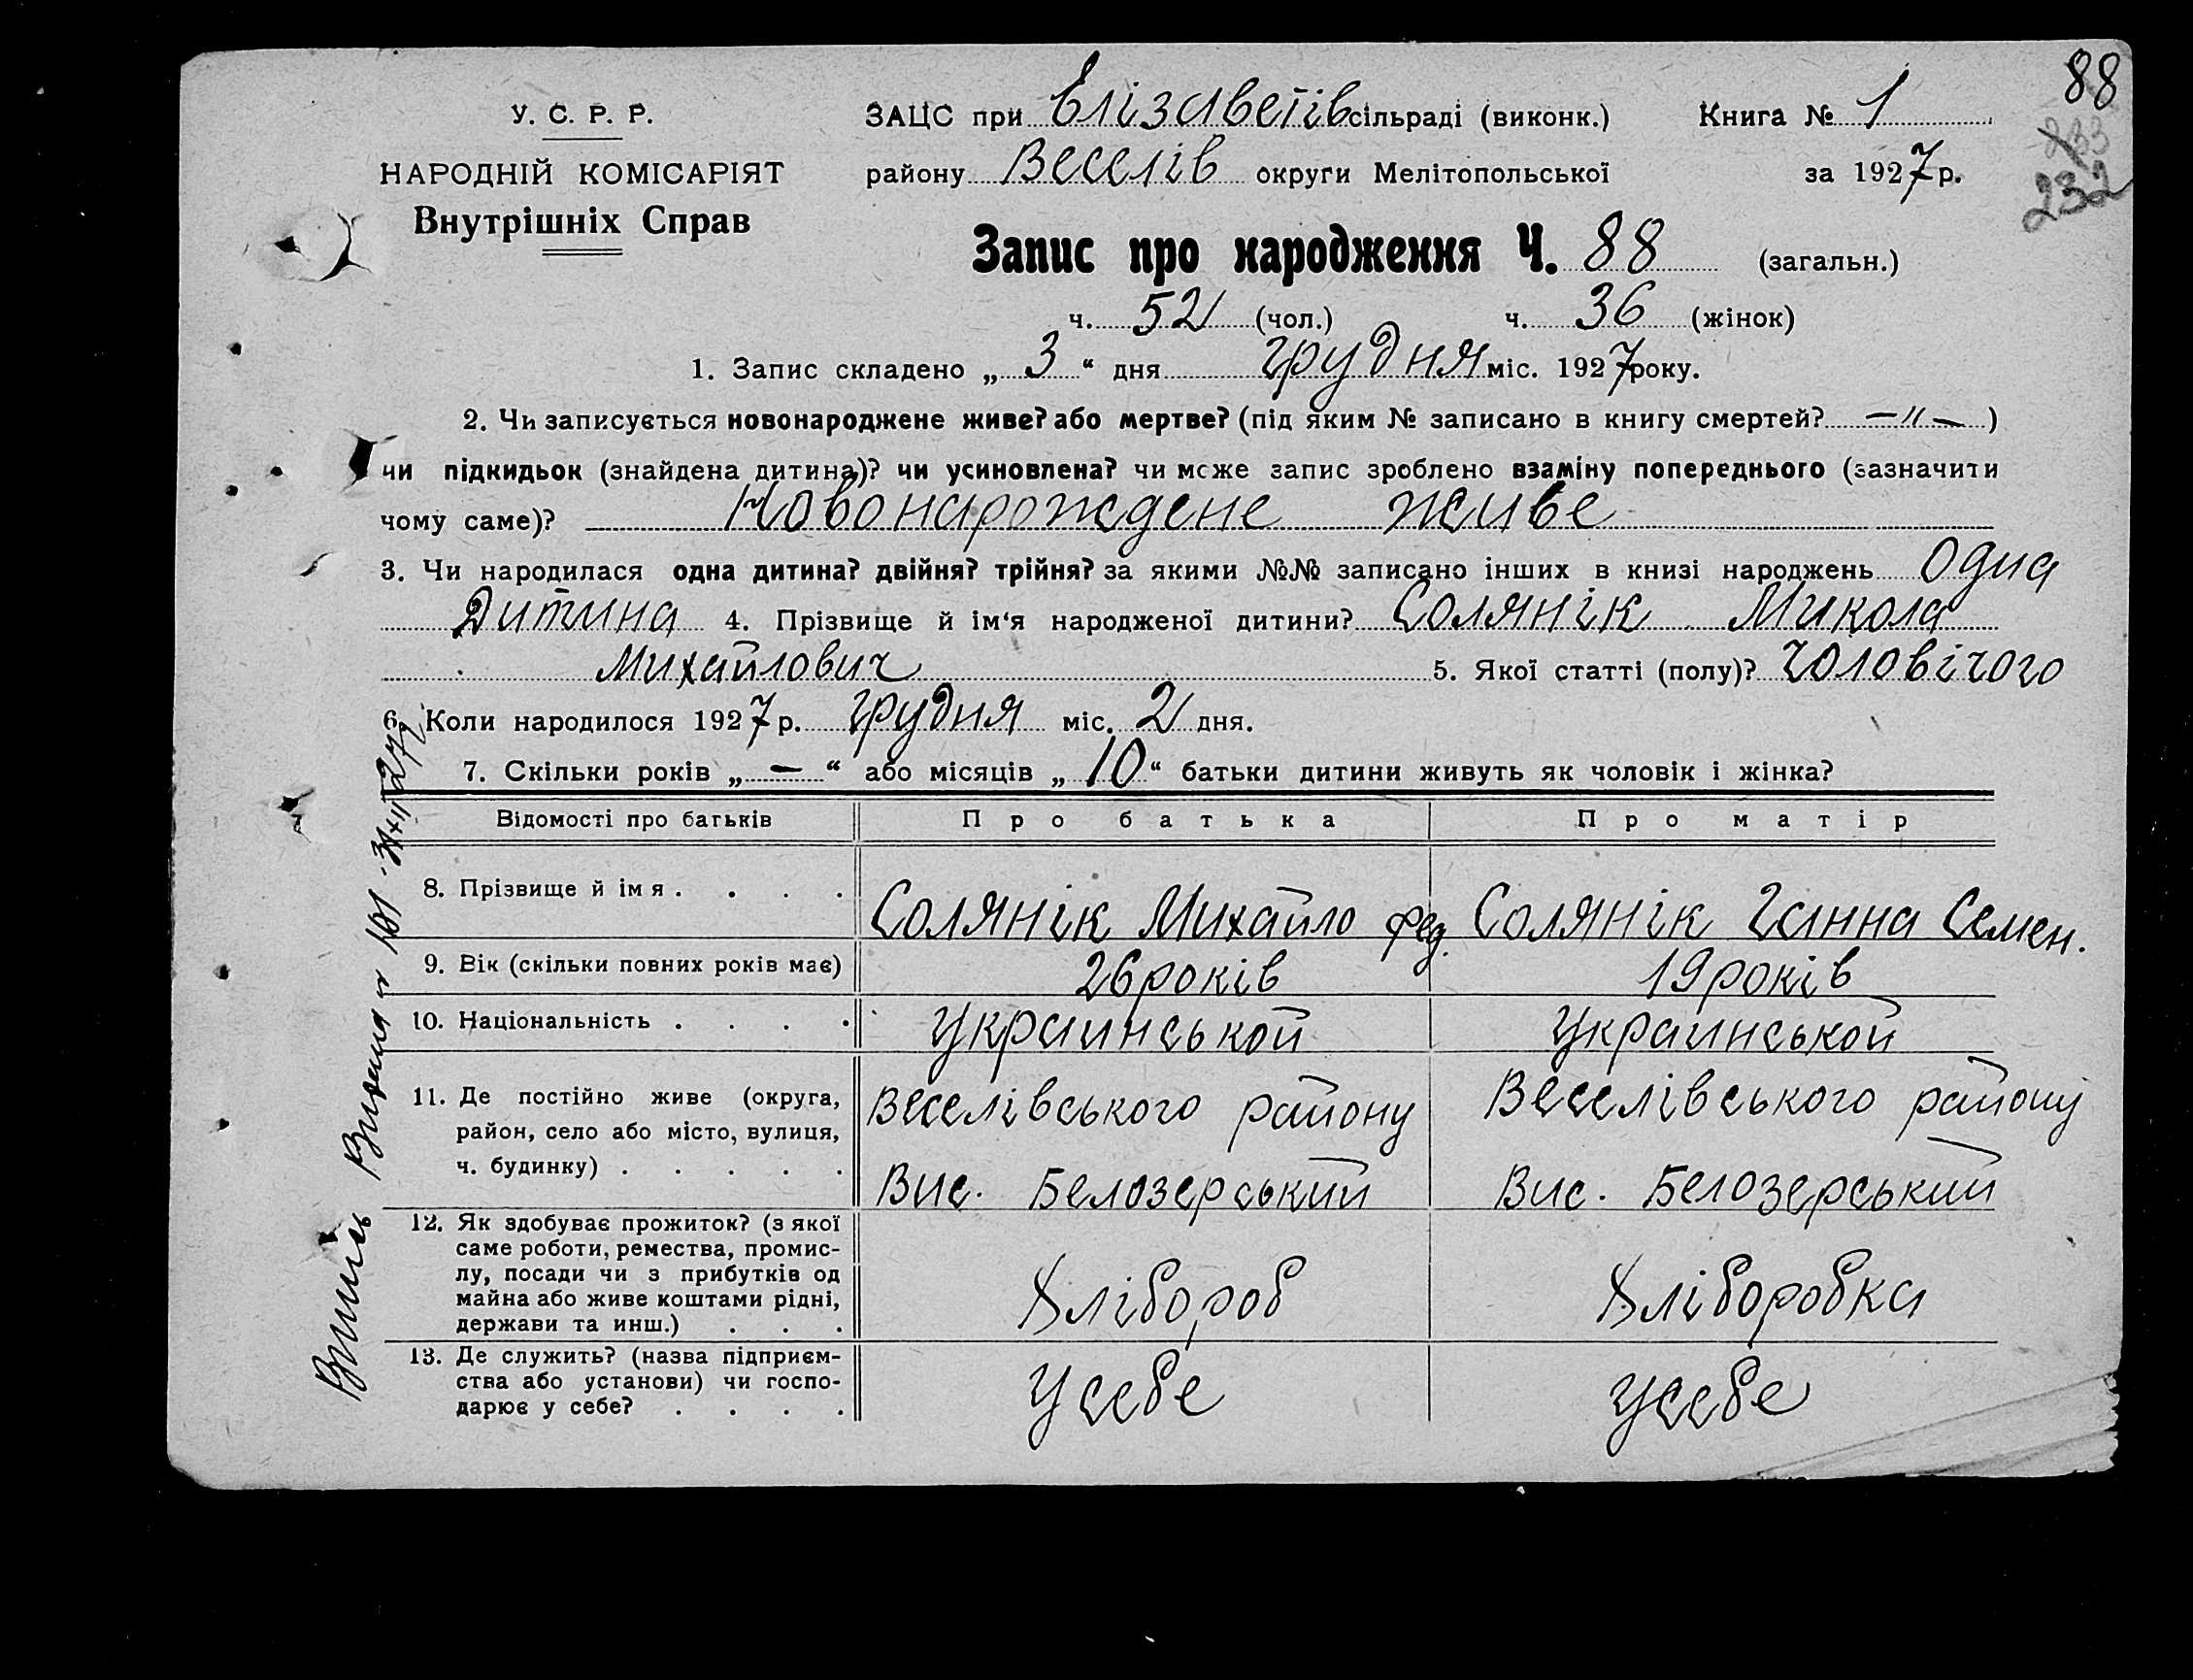 88
833
232
У. С. Р. Р.
НАРОДНІЙ КОМІСАРІЯТ
Внутрішніх Справ
ЗАЦС при Елізаветів сільраді (виконк.) Книга № 1
району Веселів округи Мелітопольської за 1927 р.
Запис про народження Ч. 88 (загальн.)
ч. 52 (чол.) ч. 36 (жінок)
1. Запис складено „ 3 “ дня грудня міс. 1927 року.
2. Чи записується новонароджене живе? або мертве? (під яким № записано в книгу смертей? —„— )
чи підкидьок (знайдена дитина)? чи усиновлена? чи може запис зроблено взаміну попереднього (зазначити
чому саме)? Новонарождене живе
3. Чи народилася одна дитина? двійня? трійня? за якими №№ записано інших в книзі народжень Одна
Дитина 4. Прізвище й ім‘я народженої дитини? Солянік Микола
Михайлович 5. Якої статті (полу)? Чоловічого
6. Коли народилося 1927 р. грудня міс. 2 дня.
7. Скільки років „ — “ або місяців „ 10 “ батьки дитини живуть як чоловік і жінка?
Відомості про батьків Про батька Про матір
8. Прізвище й імя . . . . Солянік Михайло Фед. Солянік Ганна Семен.
9. Вік (скільки повних років має) 26 років 19 років
10. Національність . . . . Украинськой Украинськой
11. Де постійно живе (округа, Веселівського району Веселівського району
район, село або місто, вулиця,
ч. будинку) . . . . . Вис. Белозерський Вис. Белозерський
12. Як здобуває прожиток? (з якої
саме роботи, ремества, промис-
лу, посади чи з прибутків од Хлібороб Хліборобка
майна або живе коштами рідні,
держави та инш.) . . .
13. Де служить? (назва підприєм-
ства або установи) чи госпо- Усебе Усебе
дарює у себе? . . . .